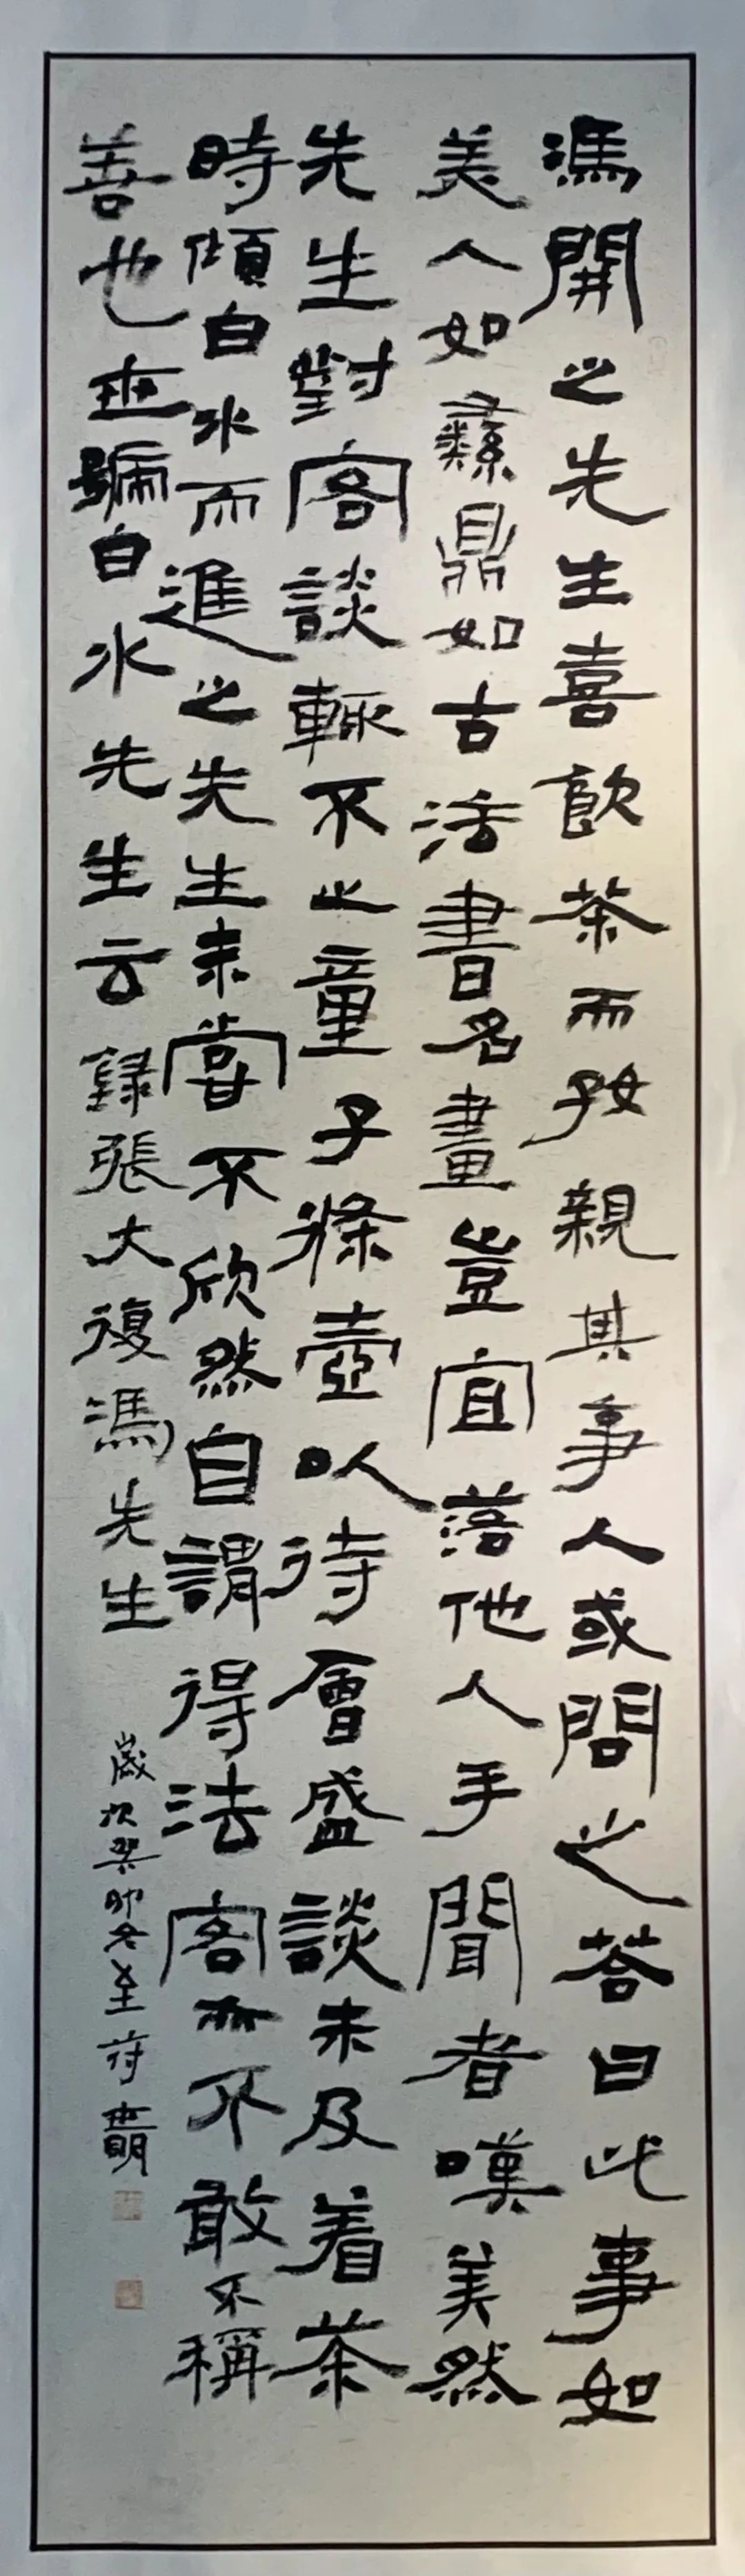 馮開之先生喜飲茶而好親其事人或問之答曰此事如
美人如彝鼎如古法書名畫豈宜落他人手聞者嘆美然
先生對客談輒不止童子滌壺以待會盛談未及着茶
時傾白水而進之先生未嘗不欣然自謂得法客亦不敢不稱
善也世號白水先生云 錄張大復馮先生
歲次癸卯冬至